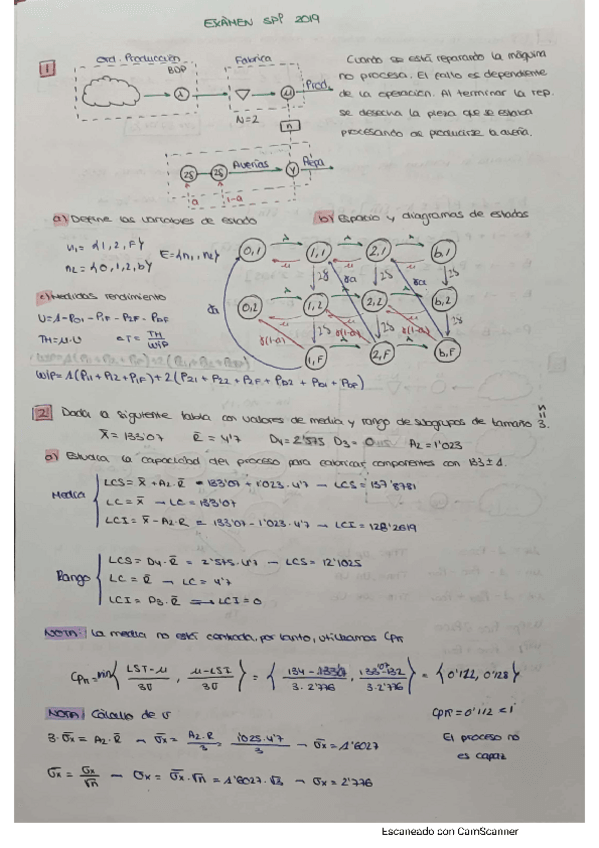 EXAMEN SPP 2019
1
Ord. Producción
BOP
λ
Fabrica
N=2
μ
Prod.
n
Averías
2γ
2γ
a
1-a
γ
Repa
Cuando se está reparando la máquina
no procesa. El fallo es dependiente
de la operación. Al terminar la rep.
se desecha la pieza que se estaba
procesando de producirse la avería.
a) Define las variables de estado
n₁ = {1, 2, F}
n₂ = {0, 1, 2, b}
E={n₁, n₂}
b) Espacio y diagramas de estados
0,1
1,1
2,1
b,1
0,2
1,2
2,2
b,2
1,F
2,F
b,F
λ
μ
2γ
γa
γ(1-a)
c) Medidas rendimiento
U=1-P01-P1F-P2F-PbF
TH=μ·U
CT = TH/WIP
WIP=1(P11+P12+P1F)+2(P21+P22+P2F+Pb2+Pb1+PbF)
2 Dada la siguiente tabla con valores de media y rango de subgrupos de tamaño 3.
n
X̄ = 133'07 R̄ = 4'7 D4=2'575 D3=0 A2=1'023
a) Estudia la capacidad del proceso para fabricar componentes con 133±1.
Media
LCS = X̄ + A2·R̄ = 133'07 + 1'023·4'7 → LCS = 137'8781
LC = X̄ → LC = 133'07
LCI = X̄ - A2·R = 133'07 - 1'023·4'7 → LCI = 128'2619
Rango
LCS = D4·R̄ = 2'575·4'7 → LCS = 12'1025
LC = R̄ → LC = 4'7
LCI = D3·R̄ ⟹ LCI = 0
NOTA: La media no está centrada, por tanto, utilizamos Cpk
Cpk = min{ LST-μ / 3σ , μ-LSI / 3σ } = { 134-133'07 / 3·2'776 , 133'07-132 / 3·2'776 } = {0'112, 0'128}
NOTA: Cálculo de σ
Cpk = 0'112 < 1
3·σ̄x = A2·R̄ → σ̄x = A2·R / 3 , 1'025·4'7 / 3 → σ̄x = 1'6027
El proceso no
es capaz
σ̄x = σx / √n → σx = σ̄x·√n = 1'6027·√3 → σx = 2'776
Escaneado con CamScanner